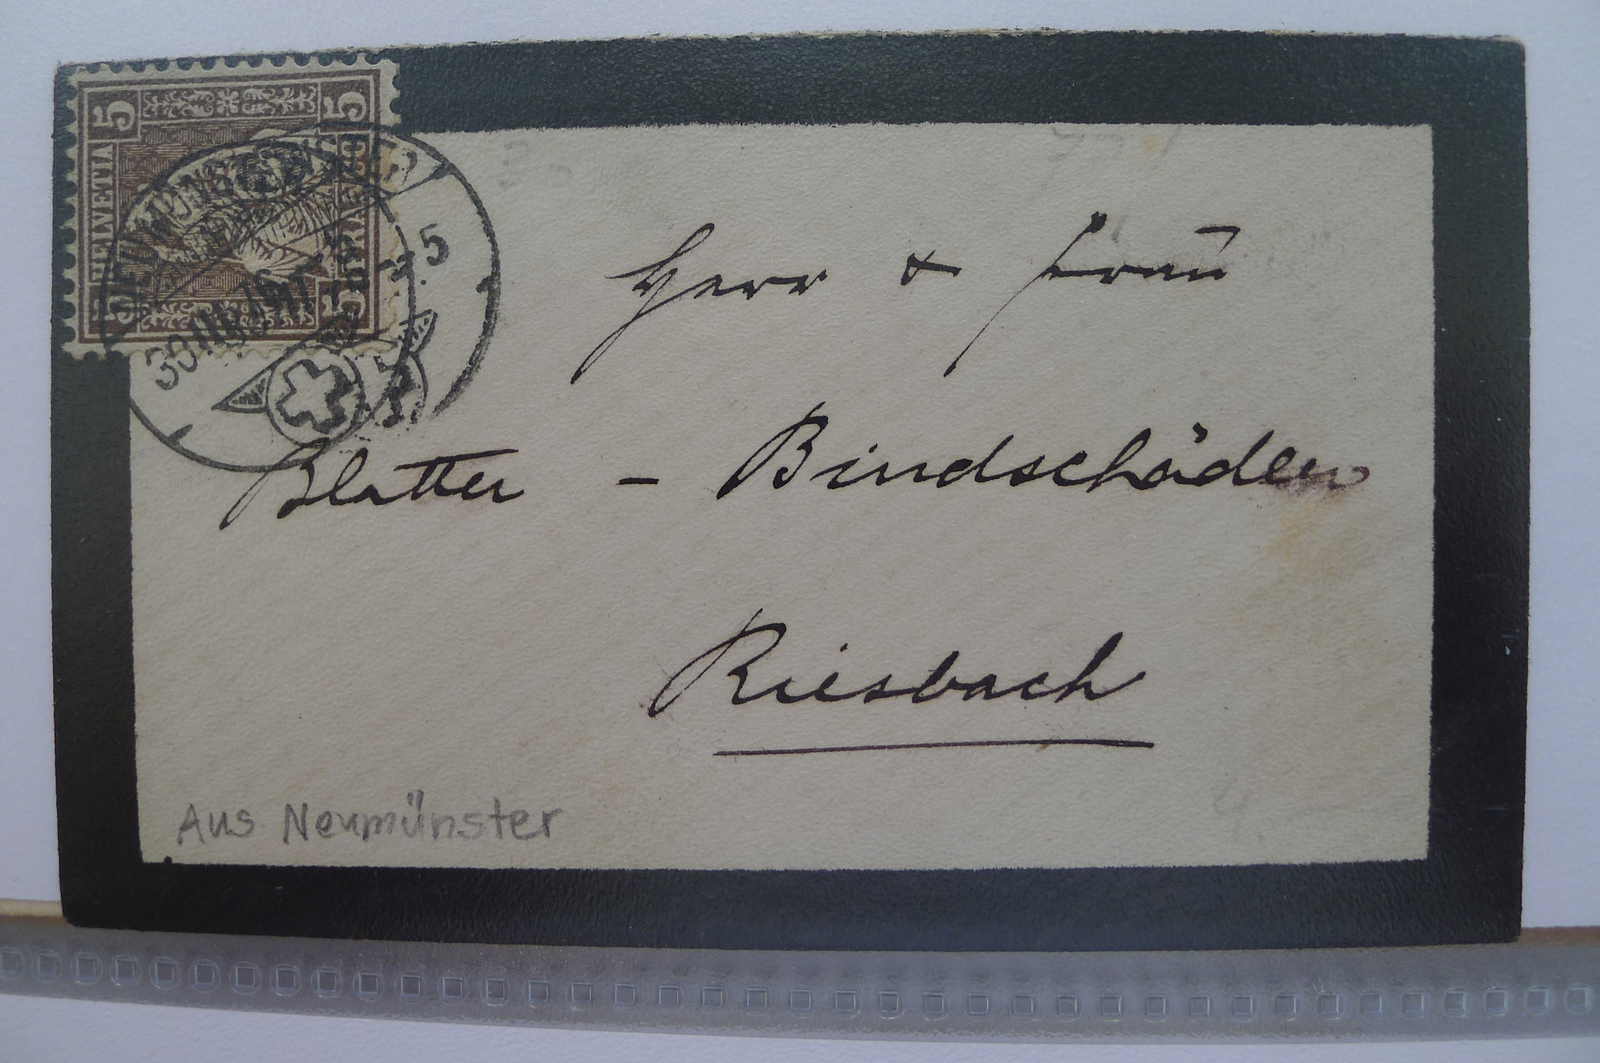 5 5
HELVETIA
5 5
5
Herr & Frau
Blatter - Bindschädler
Riesbach
Aus Neumünster